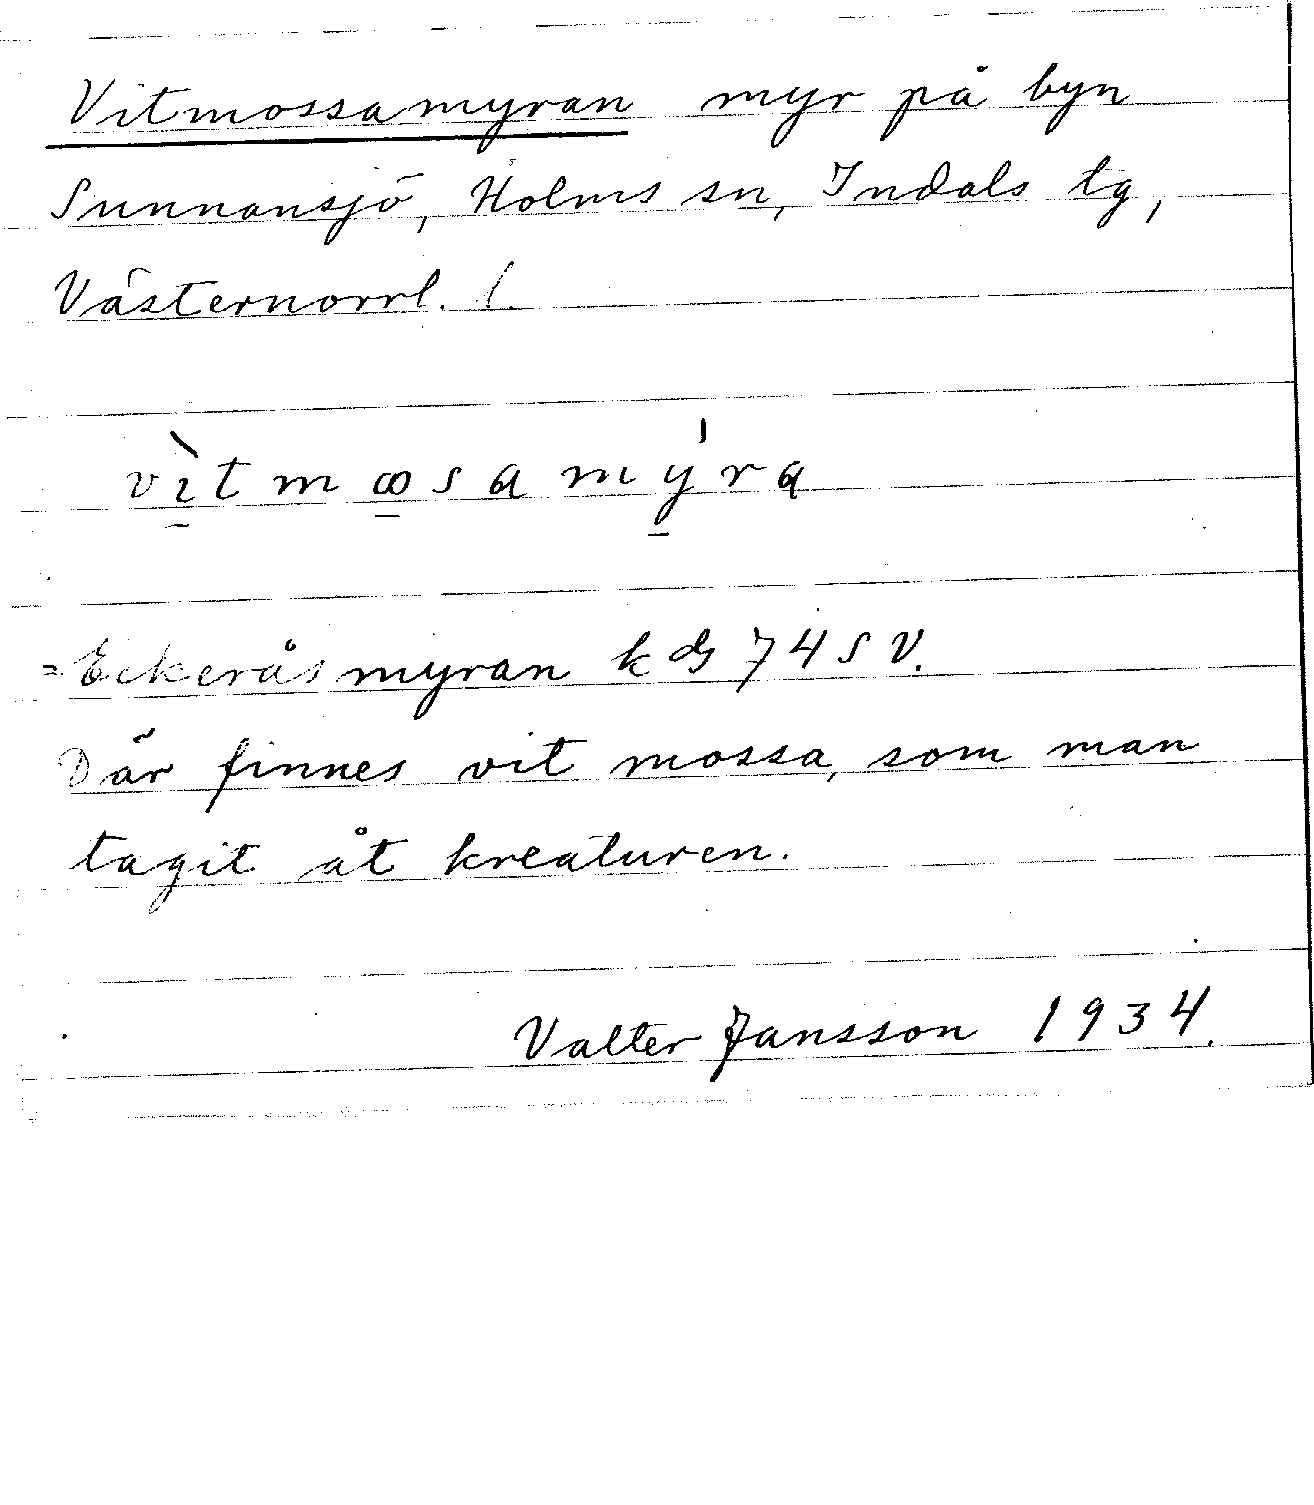 Vitmossamyran myr på byn
Sunnansjö, Holms sn, Indals tg,
Västernorrl. l.
vìtmꝏsamýra
=Eckeråsmyran k dg 74 SV.
Där finnes vit mossa, som man
tagit åt kreaturen.
Valter Jansson 1934.